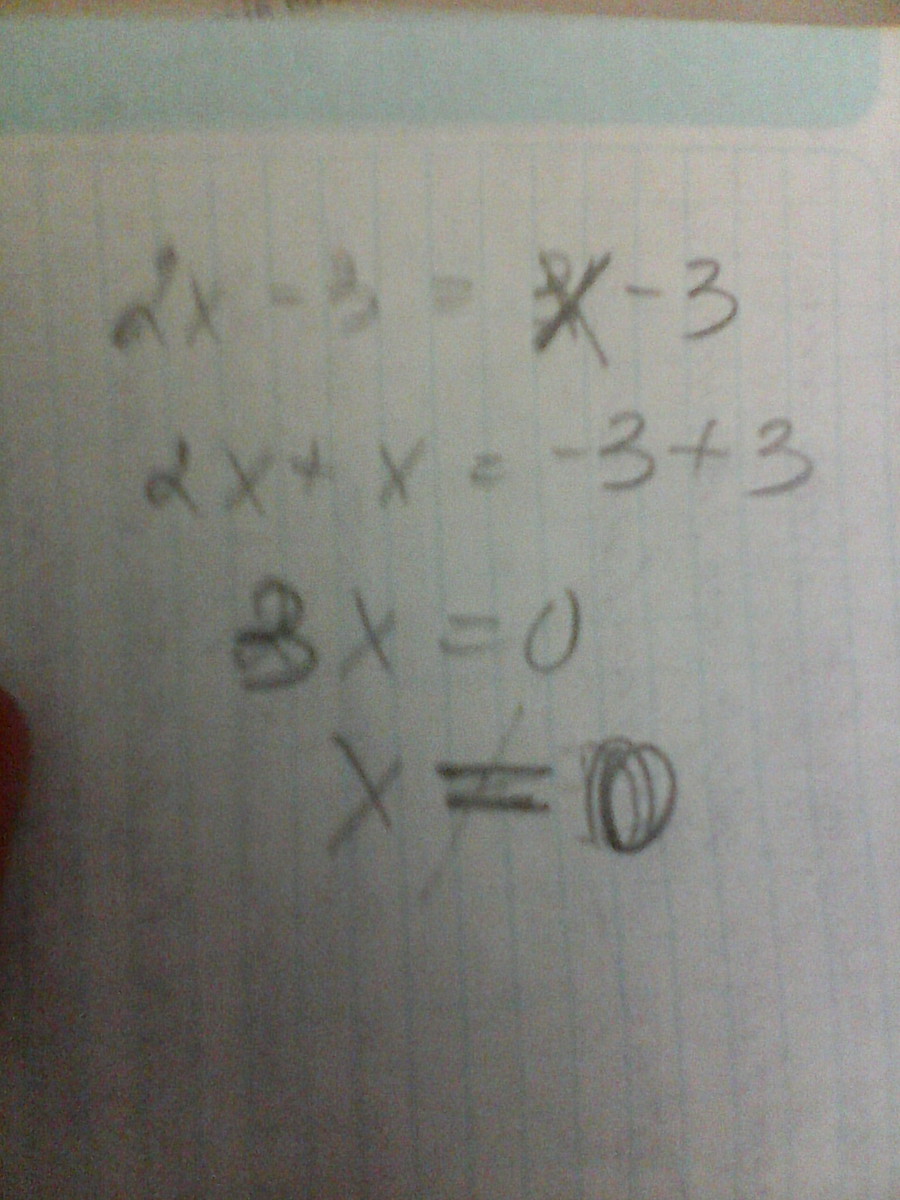 2x - 3 = x - 3
2x + x = -3 + 3
3x = 0
x = 0